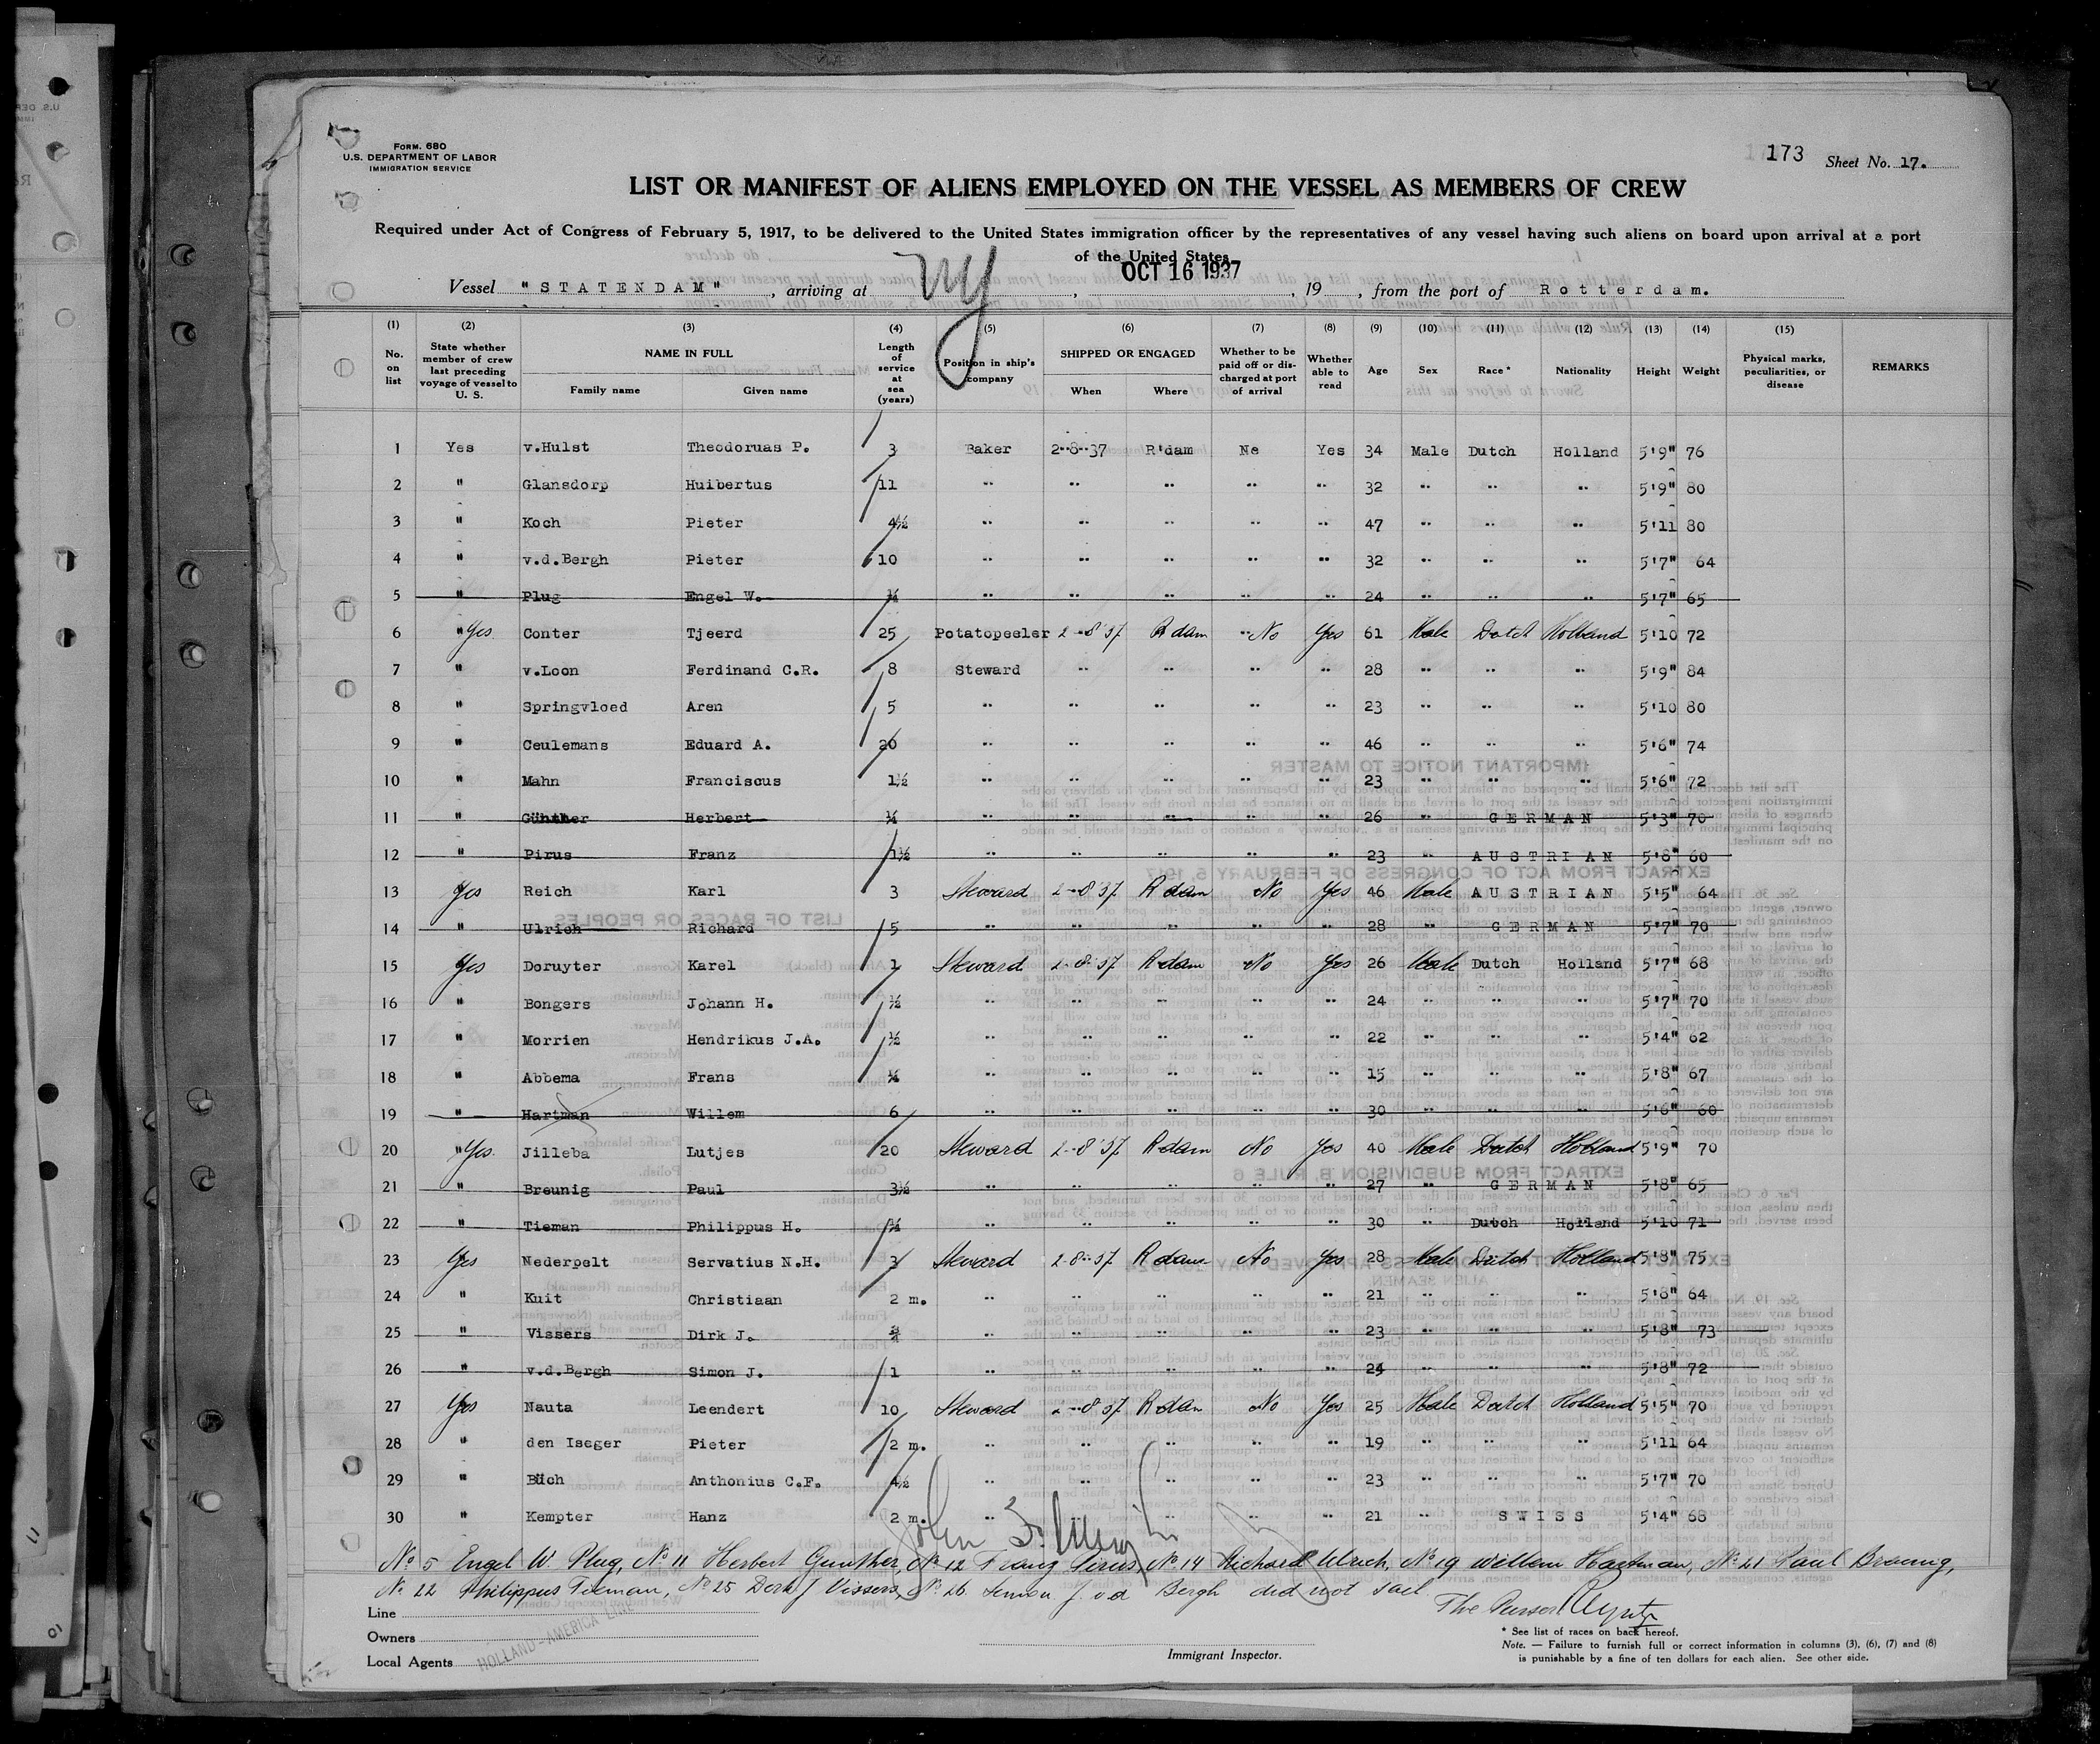 FORM. 680
U.S. DEPARTMENT OF LABOR
IMMIGRATION SERVICE
173 Sheet No. 17.
LIST OR MANIFEST OF ALIENS EMPLOYED ON THE VESSEL AS MEMBERS OF CREW
Required under Act of Congress of February 5, 1917, to be delivered to the United States immigration officer by the representatives of any vessel having such aliens on board upon arrival at a port
of the United States
Vessel "STATENDAM", arriving at NY, OCT 16 1937, 19, from the port of Rotterdam.
(1) No. on list (2) State whether member of crew last preceding voyage of vessel to U. S. (3) NAME IN FULL Family name Given name (4) Length of service at sea (years) (5) Position in ship's company (6) SHIPPED OR ENGAGED When Where (7) Whether to be paid off or discharged at port of arrival (8) Whether able to read (9) Age (10) Sex (11) Race* (12) Nationality (13) Height (14) Weight (15) Physical marks, peculiarities, or disease REMARKS
1 Yes v.Hulst Theodoruas P. 3 Baker 2--8--37 R'dam Ne Yes 34 Male Dutch Holland 5'9" 76
2 " Glansdorp Huibertus 11 " " " " " 32 " " " 5'9" 80
3 " Koch Pieter 4½ " " " " " 47 " " " 5'11 80
4 " v.d.Bergh Pieter 10 " " " " " 32 " " " 5'7" 64
5 " Plug Engel W. ¼ " " " " " 24 " " " 5'7" 65
6 " Yes Conter Tjeerd 25 Potatopeeler 2--8'37 R dam " No Yes 61 Male Dutch Holland 5'10 72
7 " v.Loon Ferdinand C.R. 8 Steward " " " " 28 " " " 5'9" 84
8 " Springvloed Aren 5 " " " " " 23 " " " 5'10 80
9 " Ceulemans Eduard A. 20 " " " " " 46 " " " 5'6" 74
10 " Mahn Franciscus 1½ " " " " " 23 " " " 5'6" 72
11 " Günther Herbert ¼ " " " " " 26 " GERMAN 5'3" 70
12 " Pirus Franz 1½ " " " " " 23 " AUSTRIAN 5'8" 60
13 Yes Reich Karl 3 Steward 2--8'37 R dam No Yes 46 Male AUSTRIAN 5'5" 64
14 " Ulrich Richard 5 " " " " " 28 " GERMAN 5'7" 70
15 Yes Doruyter Karel 1 Steward 2--8'37 R dam No Yes 26 Male Dutch Holland 5'7" 68
16 " Bongers Johann H. ½ " " " " " 24 " " " 5'7" 70
17 " Morrien Hendrikus J.A. ½ " " " " " 22 " " " 5'4" 62
18 " Abbema Frans ¼ " " " " " 15 " " " 5'8" 67
19 " Hartman Willem 6 " " " " " 30 " " " 5'6" 60
20 " Yes Jilleba Lutjes 20 Steward 2--8'37 R dam No Yes 40 Male Dutch Holland 5'9" 70
21 " Breunig Paul 3½ " " " " " 27 " GERMAN 5'8" 65
22 " Tieman Philippus H. ¼ " " " " " 30 " Dutch Holland 5'10 71
23 Yes Nederpelt Servatius N.H. 3 Steward 2-8--37 R dam No Yes 28 Male Dutch Holland 5'8" 75
24 " Kuit Christiaan 2 m. " " " " " 21 " " " 5'8" 64
25 " Vissers Dirk J. " " " " " 23 " " " 5'8" 73
26 " v.d.Bergh Simon J. 1 " " " " " 24 " " " 5'8" 72
27 Yes Nauta Leendert 10 Steward 2--8 37 R dam No Yes 25 Male Dutch Holland 5'5" 70
28 " den Iseger Pieter 2 m. " " " " " 19 " " " 5'11 64
29 " Büch Anthonius C.F. 4½ " " " " " 23 " " " 5'7" 70
30 " Kempter Hanz 2 m. " " " " " 21 " SWISS 5'4" 68
No 5 Engel W. Plug, No 11 Herbert Gunther, No 12 Franz Pirus, No 14 Richard Ulrich, No 19 Willem Hartman, No 21 Paul Breunig,
No 22 Philippus Tieman, No 25 Derk J Vissers, No 26 Simon J. v d Bergh did not sail.
The Purser
Line
Owners HOLLAND-AMERICA LINE
Local Agents
Immigrant Inspector.
* See list of races on back hereof.
Note. — Failure to furnish full or correct information in columns (3), (6), (7) and (8)
is punishable by a fine of ten dollars for each alien. See other side.